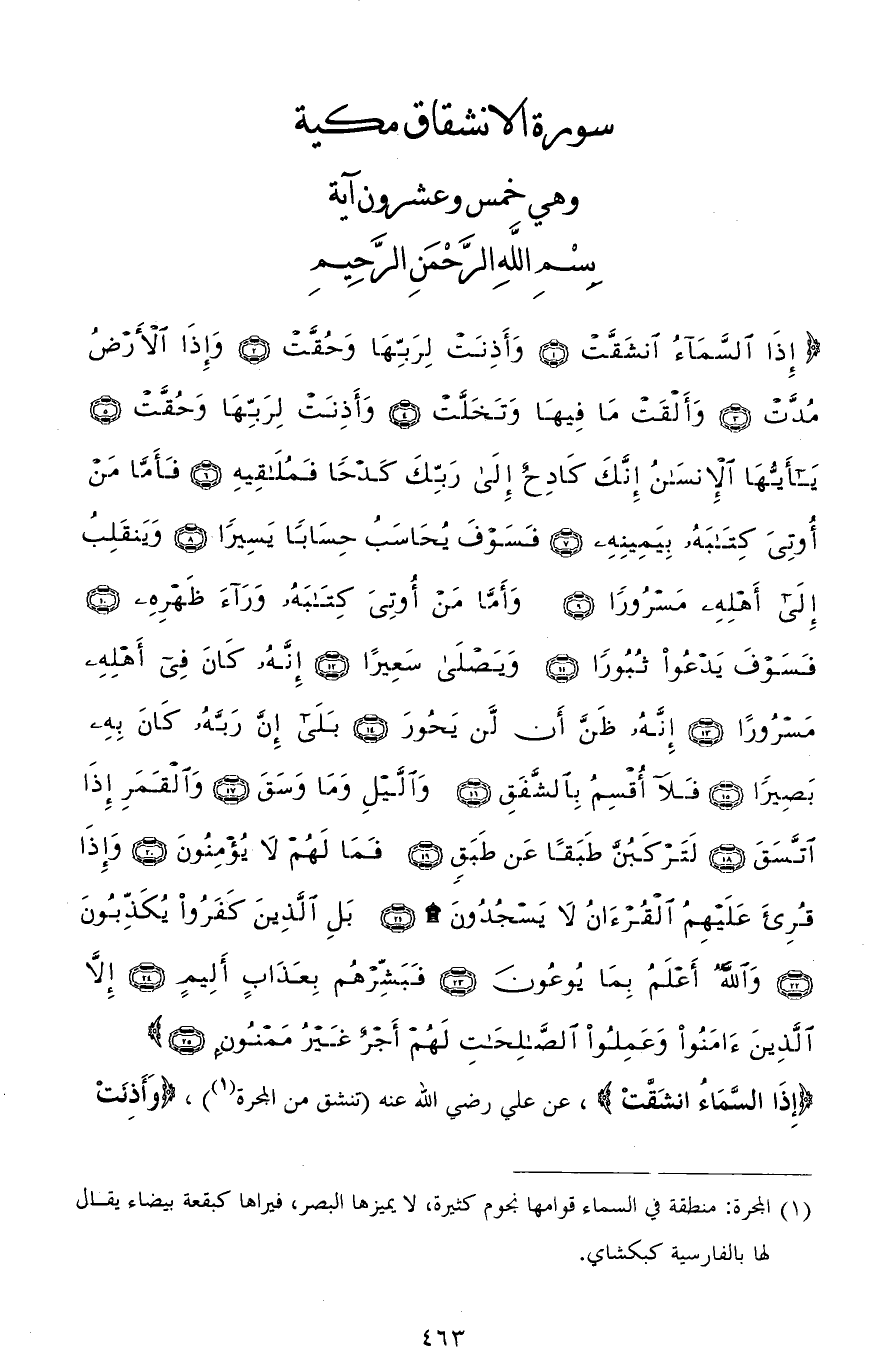 سورة الانشقاق مكية
وهي خمس وعشرون آية
بِسْمِ اللَّهِ الرَّحْمَنِ الرَّحِيمِ
﴿ إِذَا ٱلسَّمَآءُ ٱنشَقَّتْ ١ وَأَذِنَتْ لِرَبِّهَا وَحُقَّتْ ٢ وَإِذَا ٱلْأَرْضُ
مُدَّتْ ٣ وَأَلْقَتْ مَا فِيهَا وَتَخَلَّتْ ٤ وَأَذِنَتْ لِرَبِّهَا وَحُقَّتْ ٥
يَـٰٓأَيُّهَا ٱلْإِنسَـٰنُ إِنَّكَ كَادِحٌ إِلَىٰ رَبِّكَ كَدْحًا فَمُلَـٰقِيهِ ٦ فَأَمَّا مَنْ
أُوتِىَ كِتَـٰبَهُۥ بِيَمِينِهِۦ ٧ فَسَوْفَ يُحَاسَبُ حِسَابًا يَسِيرًا ٨ وَيَنقَلِبُ
إِلَىٰٓ أَهْلِهِۦ مَسْرُورًا ٩ وَأَمَّا مَنْ أُوتِىَ كِتَـٰبَهُۥ وَرَآءَ ظَهْرِهِۦ ١٠
فَسَوْفَ يَدْعُوا۟ ثُبُورًا ١١ وَيَصْلَىٰ سَعِيرًا ١٢ إِنَّهُۥ كَانَ فِىٓ أَهْلِهِۦ
مَسْرُورًا ١٣ إِنَّهُۥ ظَنَّ أَن لَّن يَحُورَ ١٤ بَلَىٰٓ إِنَّ رَبَّهُۥ كَانَ بِهِۦ
بَصِيرًا ١٥ فَلَآ أُقْسِمُ بِٱلشَّفَقِ ١٦ وَٱلَّيْلِ وَمَا وَسَقَ ١٧ وَٱلْقَمَرِ إِذَا
ٱتَّسَقَ ١٨ لَتَرْكَبُنَّ طَبَقًا عَن طَبَقٍ ١٩ فَمَا لَهُمْ لَا يُؤْمِنُونَ ٢٠ وَإِذَا
قُرِئَ عَلَيْهِمُ ٱلْقُرْءَانُ لَا يَسْجُدُونَ ۩ ٢١ بَلِ ٱلَّذِينَ كَفَرُوا۟ يُكَذِّبُونَ
٢٢ وَٱللَّهُ أَعْلَمُ بِمَا يُوعُونَ ٢٣ فَبَشِّرْهُم بِعَذَابٍ أَلِيمٍ ٢٤ إِلَّا
ٱلَّذِينَ ءَامَنُوا۟ وَعَمِلُوا۟ ٱلصَّـٰلِحَـٰتِ لَهُمْ أَجْرٌ غَيْرُ مَمْنُونٍ ٢٥ ﴾
﴿إِذَا السَّمَاءُ انشَقَّتْ ﴾ ، عن علي رضي الله عنه (تنشق من المجرة(١)) ، ﴿وَأَذِنَتْ
(١) المجرة: منطقة في السماء قوامها نجوم كثيرة، لا يميزها البصر، فيراها كبقعة بيضاء يقال
لها بالفارسية كبكشاي.
٤٦٣